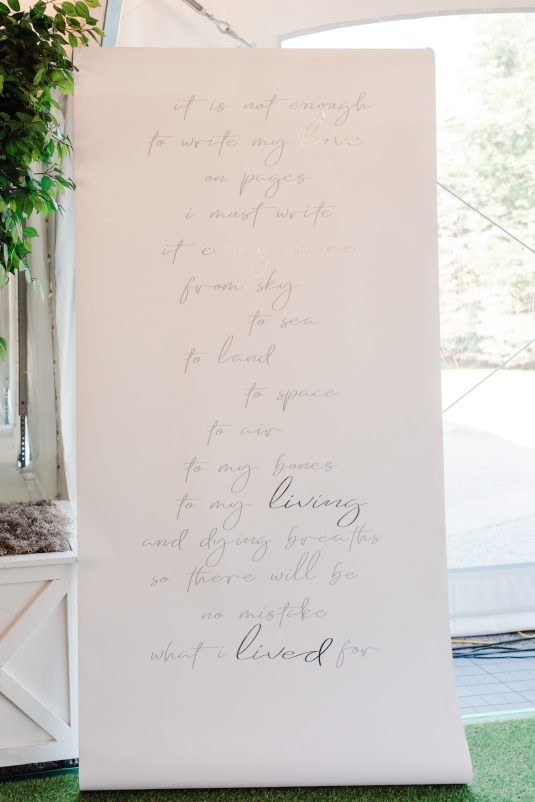 it is not enough
to write my love
on pages
i must write
it everywhere
from sky
to sea
to land
to space
to air
to my bones
to my living
and dying breaths
so there will be
no mistake
what i lived for